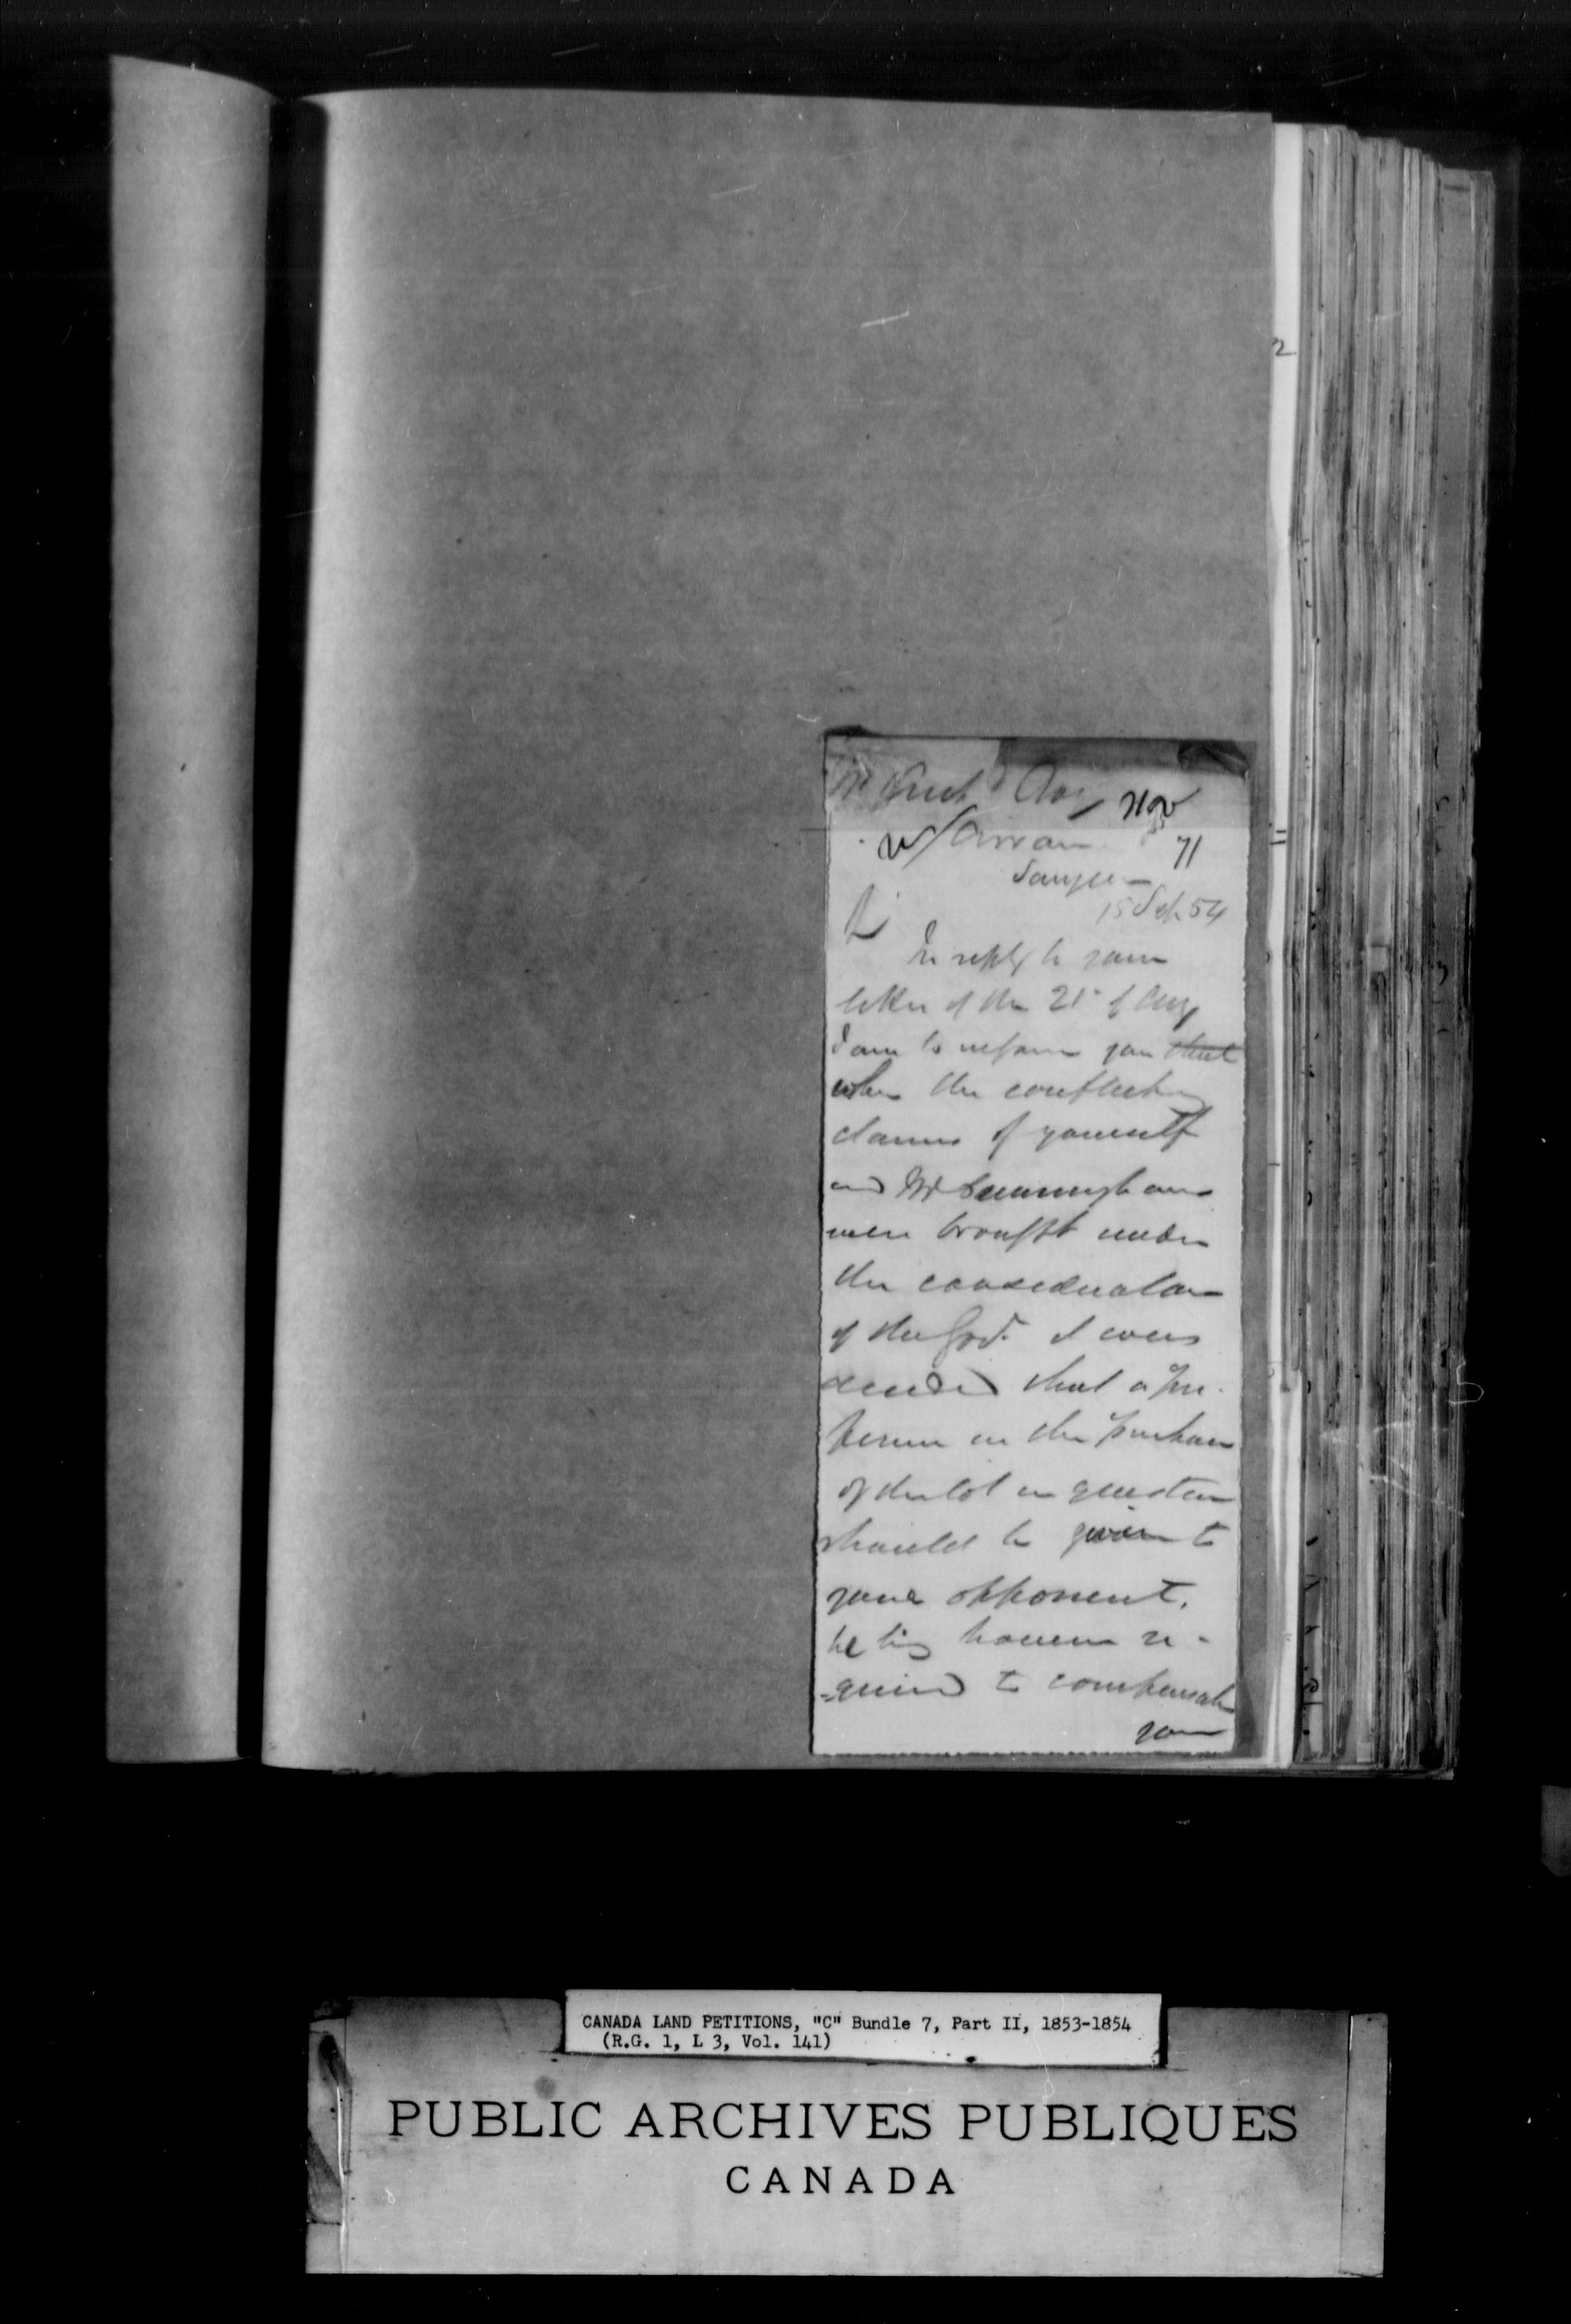 2
Nov
W/ Arran 71
Saugeen
15 Sep 54
In reply to your
letter of the 21st of Aug
I am to inform you that
when the conflicting
claims of yourself
and Mr Cunningham
were brought under
the consideration
of the Govt it was
decided that a pre-
ference in the purchase
of the lot in question
should be given to
your opponent,
he being however re-
=quired to compensate
you
CANADA LAND PETITIONS, "C" Bundle 7, Part II, 1853-1854
(R.G. 1, L 3, Vol. 141)
PUBLIC ARCHIVES PUBLIQUES
CANADA